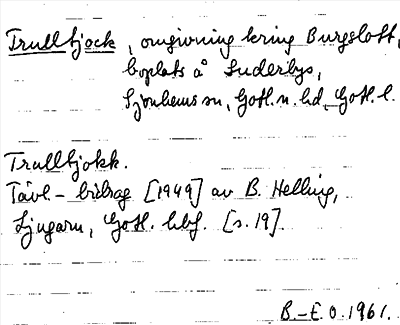 Trullbjock, omgivning kring Burgslott,
boplats å Suderbys,
Sjonhems sn, Gotl. n. hd, Gotl. l.
Trullbjokk.
Tävl.- bidrag [1949] av B. Helling,
Ljugarn, Gotl. hbf. [s. 19].
B.-E. O. 1961.